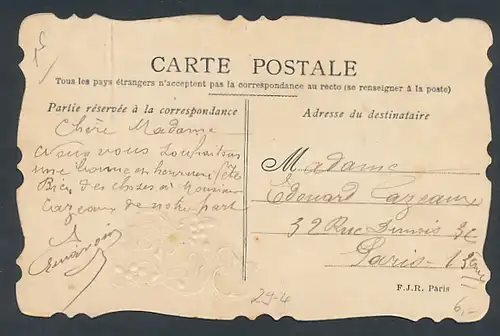 CARTE POSTALE
Tous les pays étrangers n'acceptent pas la correspondance au recto (se renseigner à la poste)
Partie réservée à la correspondance
Adresse du destinataire
Chère Madame
Nous vous souhaitons
une bonne en heureuse fête
Bien des choses a Monsieur
Cazeaux de notre part
Madame
Edouard Cazeaux
32 Rue Dunois 32
Paris - 13ème
F.J.R. Paris
29-4
6,-